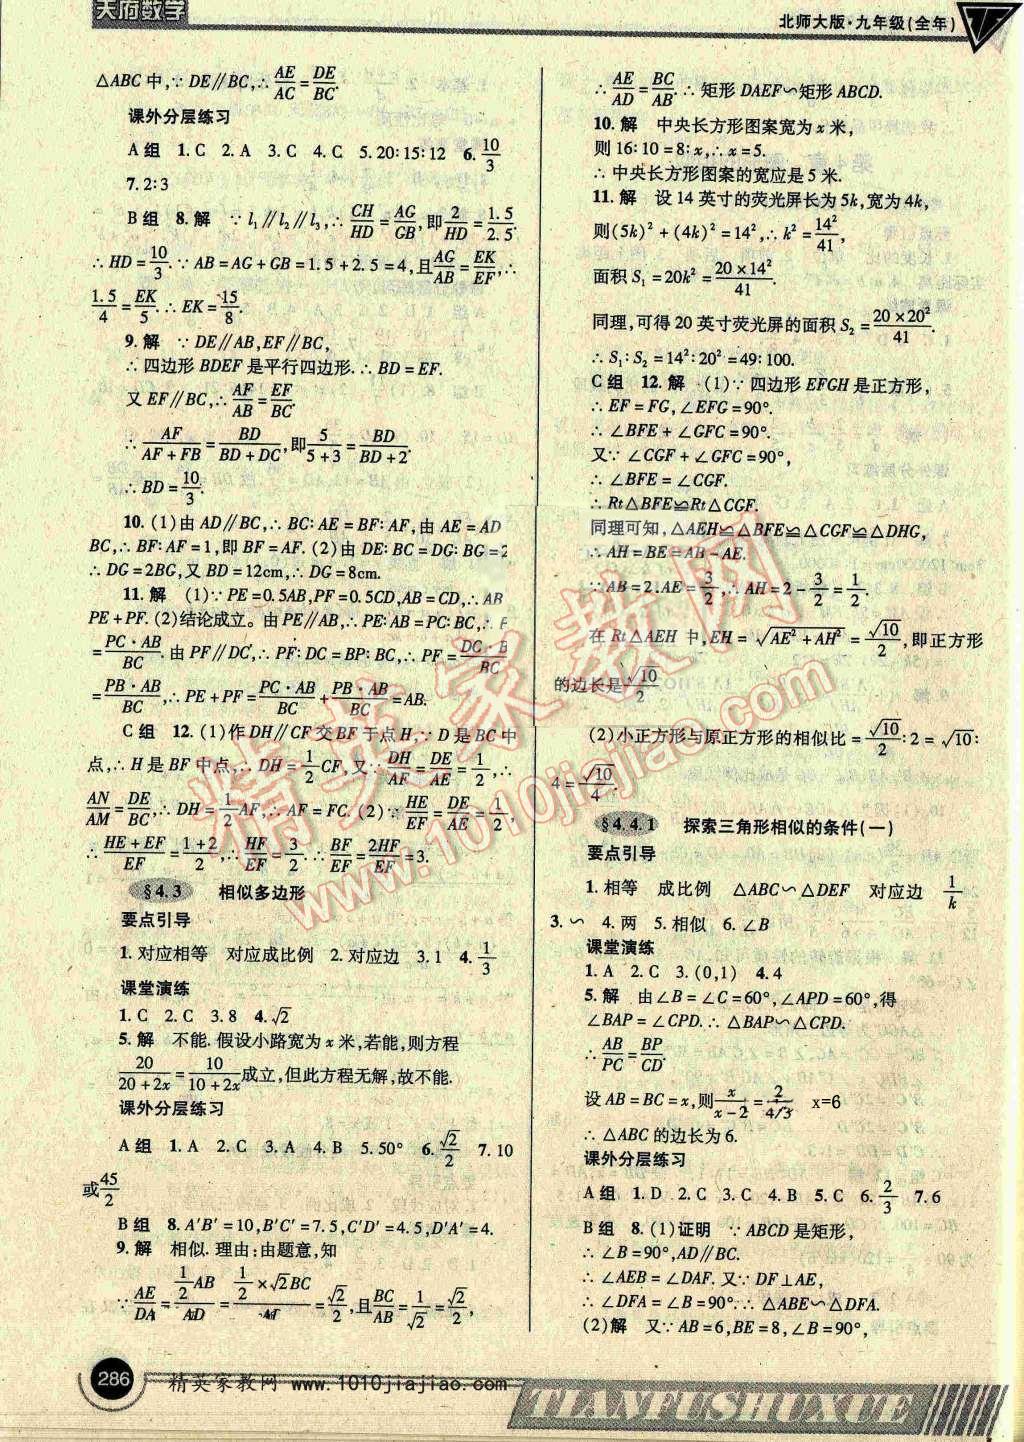 天府数学
北师大版·九年级(全年)
△ABC中,∵DE∥BC,∴AE/AC=DE/BC.
课外分层练习
A组 1.C 2.A 3.C 4.C 5.20:15:12 6.10/3
7.2:3
B组 8.解 ∵l₁∥l₂∥l₃,∴CH/HD=AG/GB,即2/HD=1.5/2.5.
∴HD=10/3.∵AB=AG+GB=1.5+2.5=4,且AG/AB=EK/EF,∴
1.5/4=EK/5.∴EK=15/8.
9.解 ∵DE∥AB,EF∥BC,
∴四边形BDEF是平行四边形.∴BD=EF.
又EF∥BC,∴AF/AB=EF/BC.
∴AF/(AF+FB)=BD/(BD+DC),即5/(5+3)=BD/(BD+2).
∴BD=10/3.
10.(1)由AD∥BC,∴BC:AE=BF:AF,由AE=AD
BC,∴BF:AF=1,即BF=AF.(2)由DE:BC=DG:BG=2
∴DG=2BG,又BD=12cm,∴DG=8cm.
11.解 (1)∵PE=0.5AB,PF=0.5CD,AB=CD,∴AB
PE+PF.(2)结论成立。由PE∥AB,∴PE:AB=PC:BC,∴P
=PC·AB/BC.由PF∥DC,∴PF:DC=BP:BC,∴PF=DC·B/BC
=PB·AB/BC,∴PE+PF=PC·AB/BC+PB·AB/BC=AB.
C组 12.(1)作DH∥CF交BF于点H,∵D是BC中
点,∴H是BF中点,∴DH=1/2CF,又∵DH/AF=DE/AE=1/2,∴
AN/AM=DE/BC,∴DH=1/2AF,∴AF=FC.(2)∵HE/EF=DE/AE=1/2,
∴(HE+EF)/EF=(1+2)/2,∴HF/EF=3/2.∴BF/EF=2HF/EF=3.
§4.3 相似多边形
要点引导
1.对应相等 对应成比例 2.对应边 3.1 4.1/3
课堂演练
1.C 2.C 3.8 4.√2
5.解 不能.假设小路宽为x米,若能,则方程
20/(20+2x)=10/(10+2x)成立,但此方程无解,故不能.
课外分层练习
A组 1.A 2.C 3.A 4.B 5.50° 6.√2/2 7.10
或45/2
B组 8.A′B′=10,B′C′=7.5,C′D′=4.5,D′A′=4.
9.解 相似.理由:由题意,知
∵AE/DA=(1/2AB)/AD=(1/2×√2BC)/AD=√2/2,且BC/AB=1/√2=√2/2,
∴AE/AD=BC/AB.∴矩形DAEF∽矩形ABCD.
10.解 中央长方形图案宽为x米,
则16:10=8:x,∴x=5.
∴中央长方形图案的宽应是5米.
11.解 设14英寸的荧光屏长为5k,宽为4k,
则(5k)²+(4k)²=14²,∴k²=14²/41,
面积S₁=20k²=20×14²/41.
同理,可得20英寸荧光屏的面积S₂=20×20²/41.
∴S₁:S₂=14²:20²=49:100.
C组 12.解 (1)∵四边形EFGH是正方形,
∴EF=FG,∠EFG=90°.
∴∠BFE+∠GFC=90°.
又∵∠CGF+∠GFC=90°,
∴∠BFE=∠CGF.
∴Rt△BFE≌Rt△CGF.
同理可知,△AEH≌△BFE≌△CGF≌△DHG,
∴AH=BE=AB-AE.
∵AB=2.AE=3/2,∴AH=2-3/2=1/2.
在Rt△AEH中,EH=√(AE²+AH²)=√10/2,即正方形
的边长是√10/2.
(2)小正方形与原正方形的相似比=√10/2:2=√10:
4=√10/4.
§4.4.1 探索三角形相似的条件(一)
要点引导
1.相等 成比例 △ABC∽△DEF 对应边 1/k
3.∽ 4.两 5.相似 6.∠B
课堂演练
1.A 2.C 3.(0,1) 4.4
5.解 由∠B=∠C=60°,∠APD=60°,得
∠BAP=∠CPD.∴△BAP∽△CPD.
∴AB/PC=BP/CD.
设AB=BC=x,则x/(x-2)=2/(4/3) x=6
∴△ABC的边长为6.
课外分层练习
A组 1.D 2.C 3.C 4.B 5.C 6.2/3 7.6
B组 8.(1)证明 ∵ABCD是矩形,
∴∠B=90°,AD∥BC.
∴∠AEB=∠DAF.又∵DF⊥AE,
∴∠DFA=∠B=90°.∴△ABE∽△DFA.
(2)解 又∵AB=6,BE=8,∠B=90°,
286
精英家教网 www.1010jiajiao.com
TIANFUSHUXUE
精英家教网
www.1010jiajiao.com